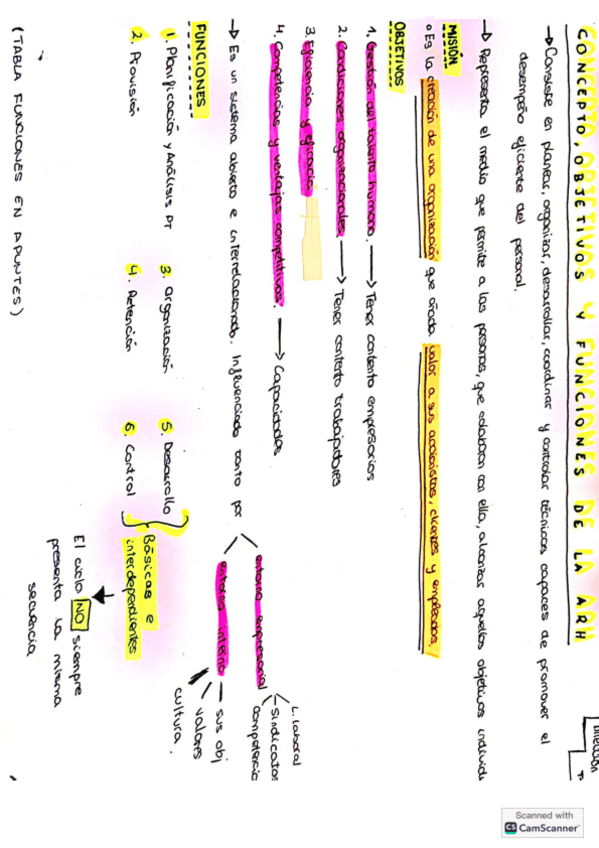 CONCEPTO, OBJETIVOS Y FUNCIONES DE LA ARH
→ Consiste en planear, organizar, desarrollar, coordinar y controlar técnicas capaces de promover el
desempeño eficiente del personal.
→ Representa el medio que permite a las personas, que colaboran con ella, alcanzar aquellos objetivos individ
MISIÓN
o Es la creación de una organización que añada valor a sus accionistas, clientes y empleados.
OBJETIVOS
1. Gestión del talento humano. → Tener contento empresarios
2. Condiciones organizacionales. → Tener contento trabajadores
3. Eficiencia y eficacia
4. Competencias y ventajas competitivas. → Capacidades
→ Es un sistema abierto e interrelacionado. Influenciado tanto por
entorno empresarial
L. laboral
Sindicatos
competencia
entorno interno
sus obj
valores
cultura.
FUNCIONES
1. Planificación y Análisis PT
3. Organización
5. Desarrollo
2. Provisión
4. Retención
6. Control
Básicas e
interdependientes
El ciclo NO siempre
presenta la misma
secuencia
(TABLA FUNCIONES EN APUNTES)
Scanned with
CS CamScanner